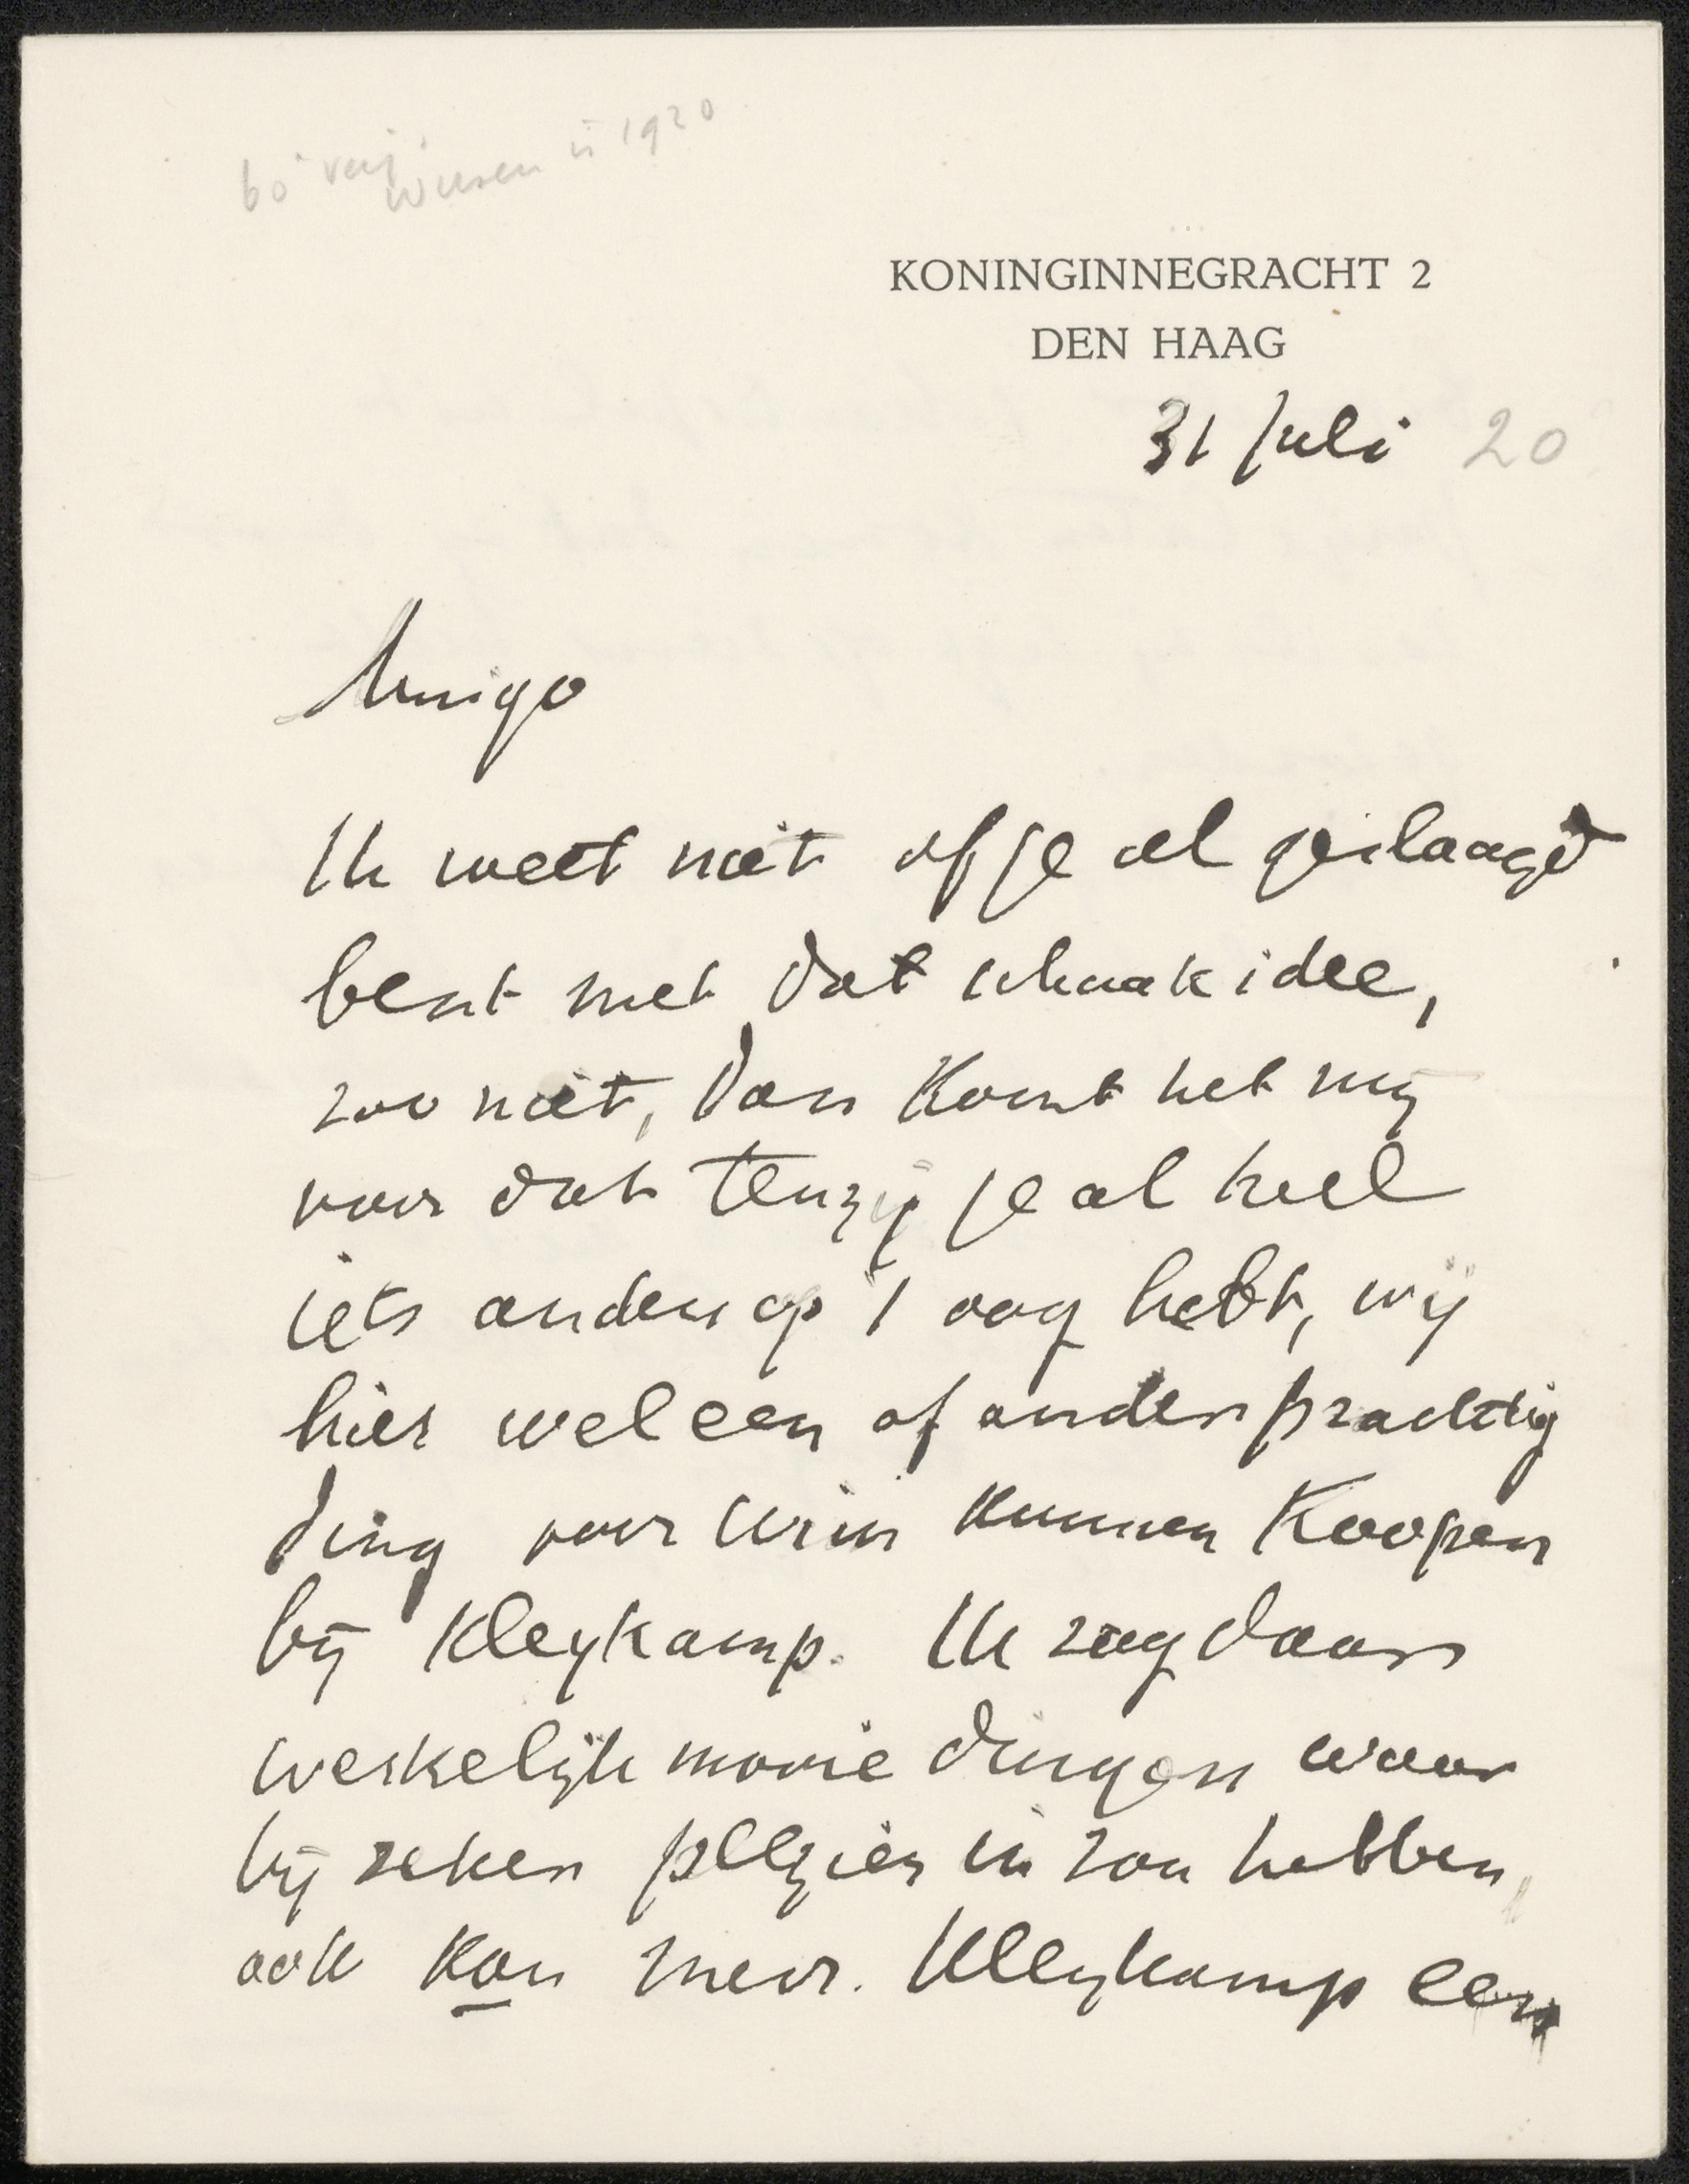 60 verj.
Wiesen in 1920
KONINGINNEGRACHT 2
DEN HAAG
31 Juli 20
Amigo
Ik weet niet of je al geslaagd
bent met dat schaakidee,
zoo niet, dan komt het mij
voor dat tenzij je al heel
iets anders op 't oog hebt, wij
hier wel een of ander prachtig
ding voor Wim kunnen koopen
bij Kleykamp. Ik zag daar
werkelijk mooie dingen waar
hij zeker plezier in zou hebben,
ook kan mevr. Kleykamp een